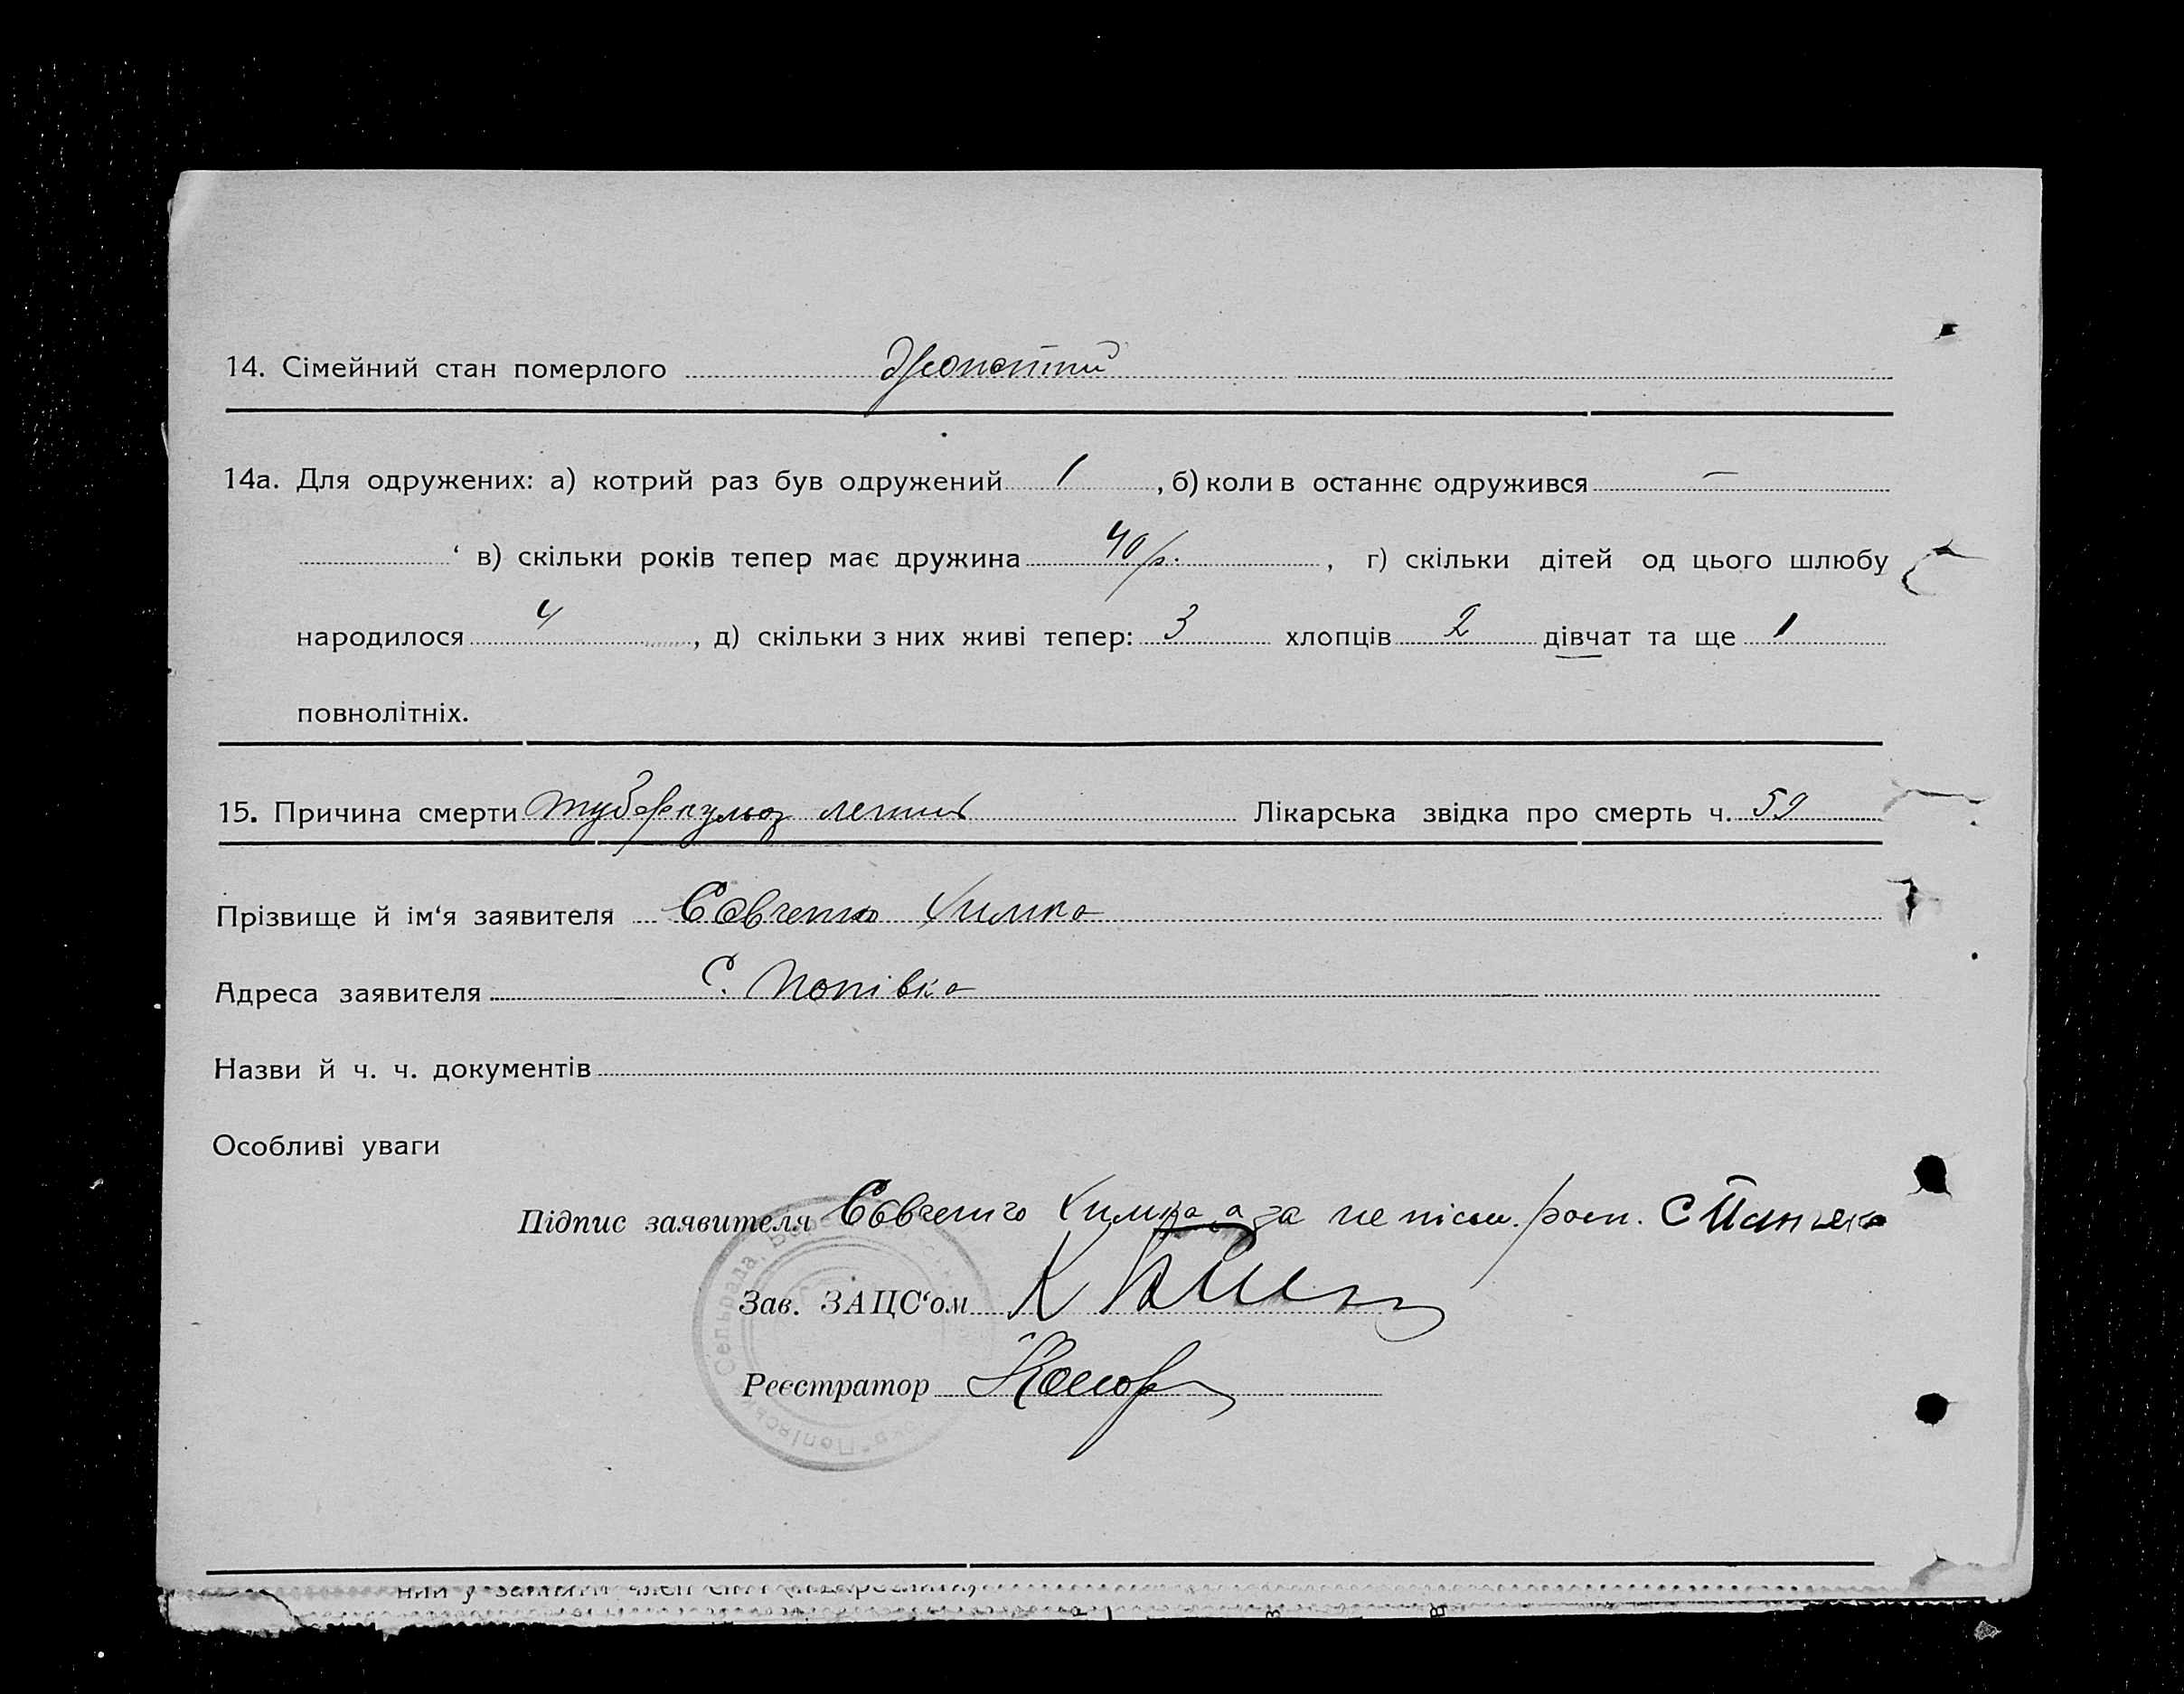 14. Сімейний стан померлого Жонатий
14а. Для одружених: а) котрий раз був одружений 1, б) коли в останнє одружився —
‘ в) скільки років тепер має дружина 40 р., г) скільки дітей од цього шлюбу
народилося 4, д) скільки з них живі тепер: 3 хлопців 2 дівчат та ще 1
повнолітніх.
15. Причина смерти туберкульоз легнів Лікарська звідка про смерть ч. 59
Прізвище й ім‘я заявителя Євченко Химка
Адреса заявителя С. Попівка
Назви й ч. ч. документів
Особливі уваги
Підпис заявителя Євченко Химка а за не писм. росп. С
Зав. ЗАЦС‘ом К
Реєстратор
Сельрада,